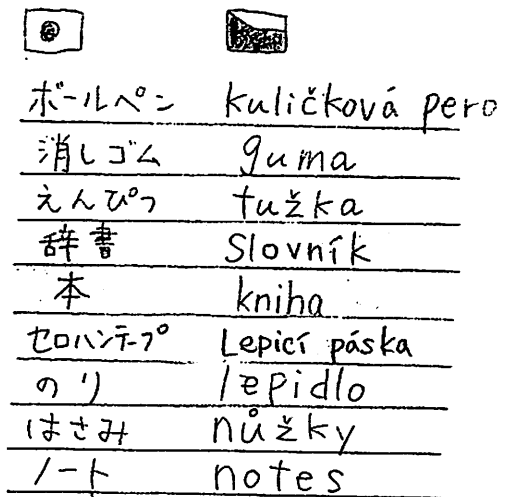 ボールペン kuličková pero
消しゴム guma
えんぴつ tužka
辞書 slovník
本 kniha
セロハンテープ Lepicí páska
のり lepidlo
はさみ nůžky
ノート notes